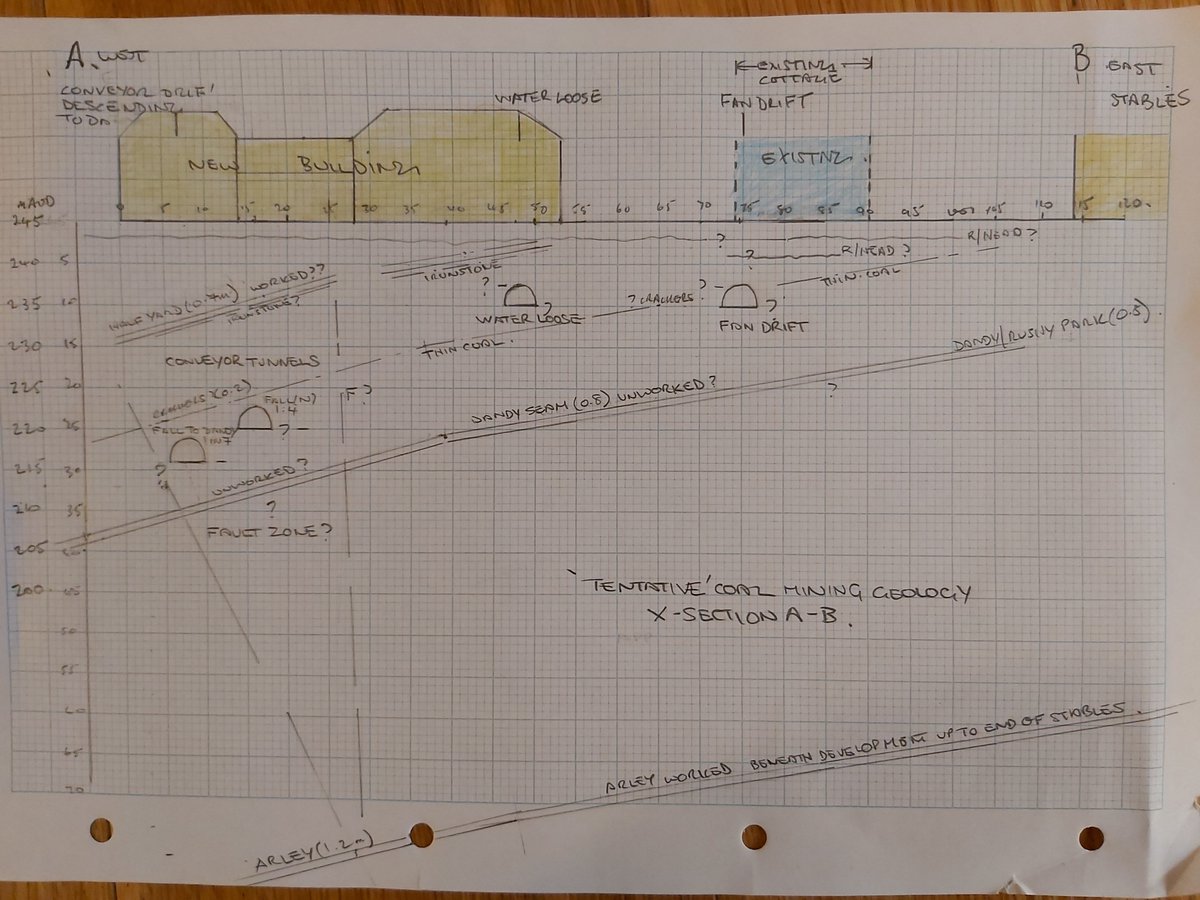 A. WEST
CONVEYOR DRIFT
DESCENDING
TO DA
WATER LOOSE
EXISTING
COTTAGE
FAN DRIFT
B EAST
STABLES
NEW BUILDING
EXISTING.
mAOD
0 5 10 15 20 25 30 35 40 45 50 55 60 65 70 75 80 85 90 95 105 110 115 120
245
240 5
235 10
230 15
225 20
220 25
215 30
210 35
205
200 45
50
55
60
65
70
?
R/HEAD?
?
R/HEAD?
IRONSTONE
THIN COAL
HALF YARD (0.7m) WORKED??
IRONSTONE?
?
?
WATER LOOSE
? CRACKERS?
?
FAN DRIFT
CONVEYOR TUNNELS
THIN COAL.
DANDY/RUSHY PARK (0.8).
(0.2)
F?
FALL(N)
1:4
FALL TO DANDY
1 IN 7
?
?
DANDY SEAM (0.8) UNWORKED?
?
UNWORKED?
?
FAULT ZONE?
'TENTATIVE' COAL MINING GEOLOGY
X-SECTION A-B.
ARLEY WORKED BENEATH DEVELOPMENT UP TO END OF STABLES.
ARLEY (1.2m)